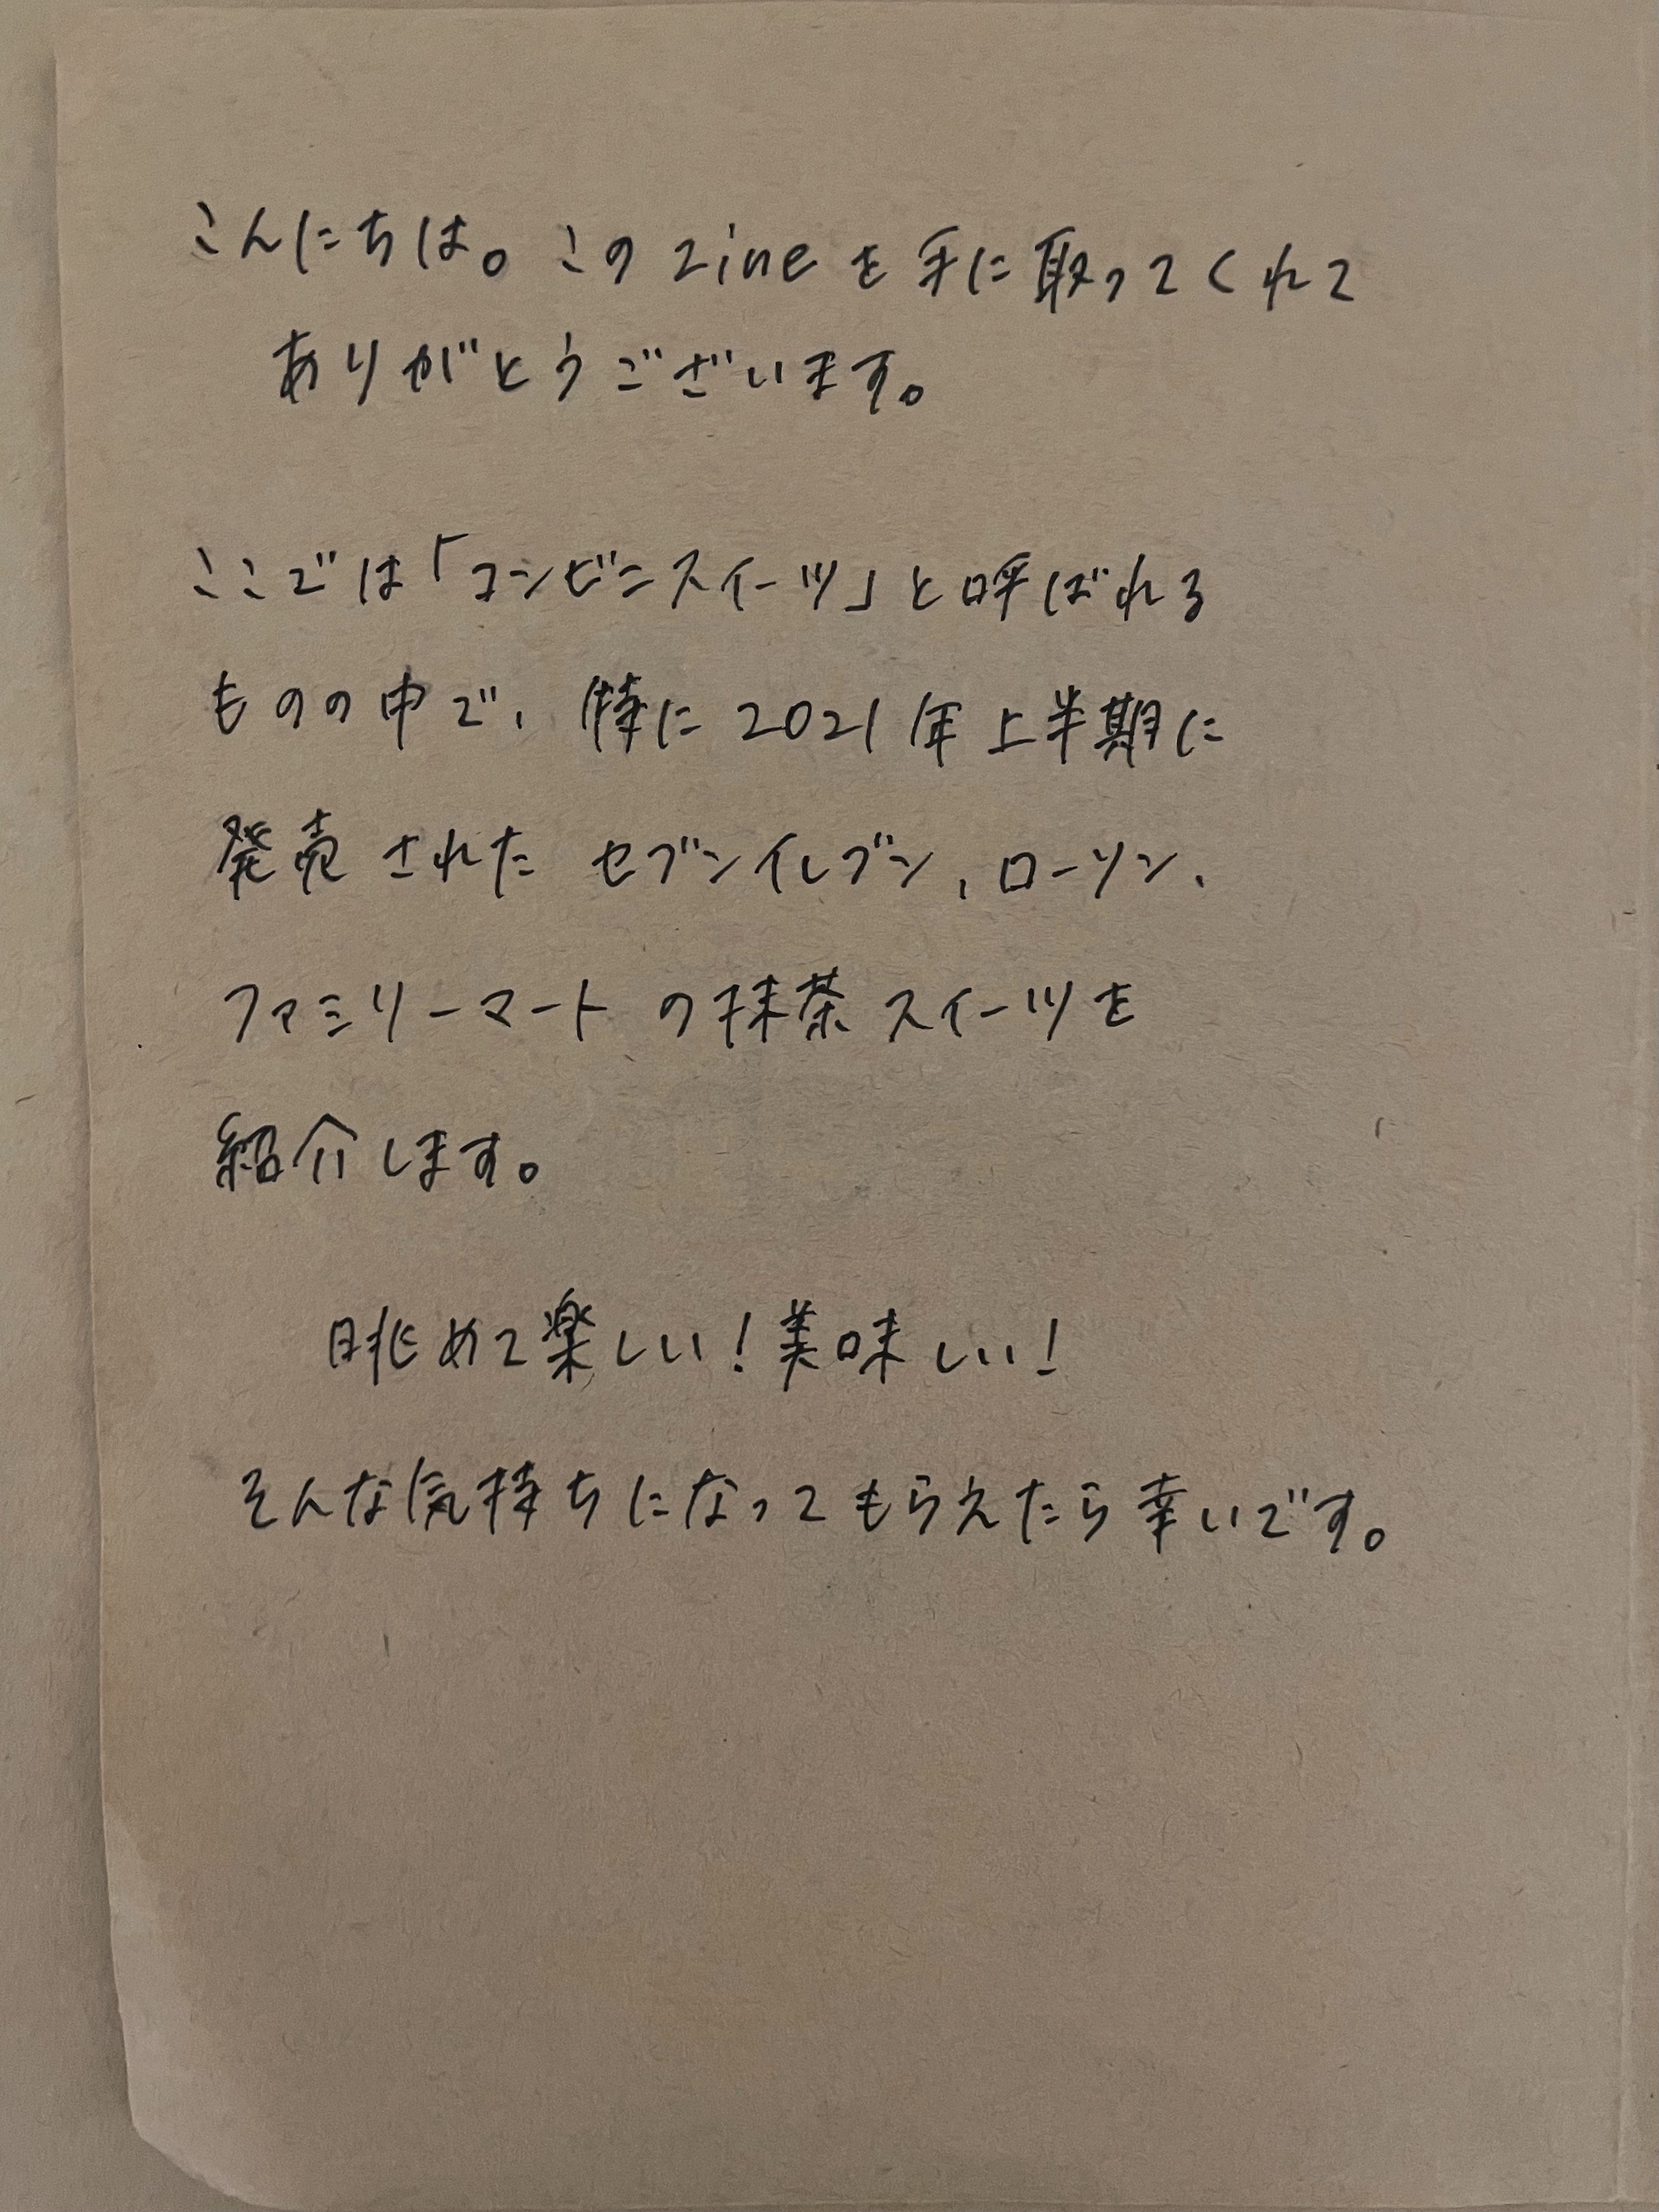 こんにちは。このzineを手に取ってくれて
ありがとうございます。
ここでは「コンビニスイーツ」と呼ばれる
ものの中で、特に2021年上半期に
発売されたセブンイレブン、ローソン、
ファミリーマートの抹茶スイーツを
紹介します。
眺めて楽しい!美味しい!
そんな気持ちになってもらえたら幸いです。